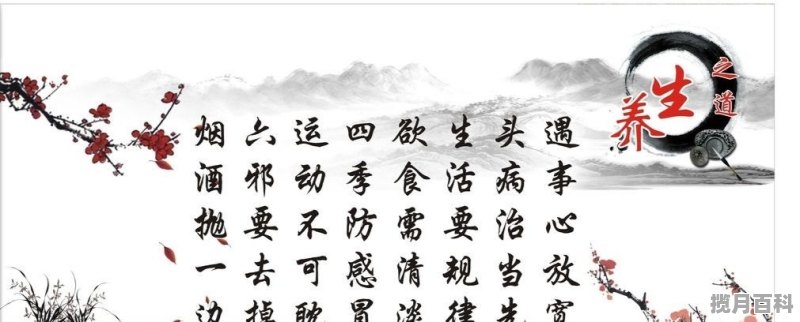 养生之道
遇事心放宽
头病治当先
生活要规律
欲食需清淡
四季防感冒
运动不可耽
六邪要去掉
烟酒抛一边
揽月百科